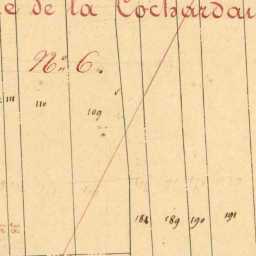 e de la Cochardai
N.º 6.
111 110 109
188 189 190 191